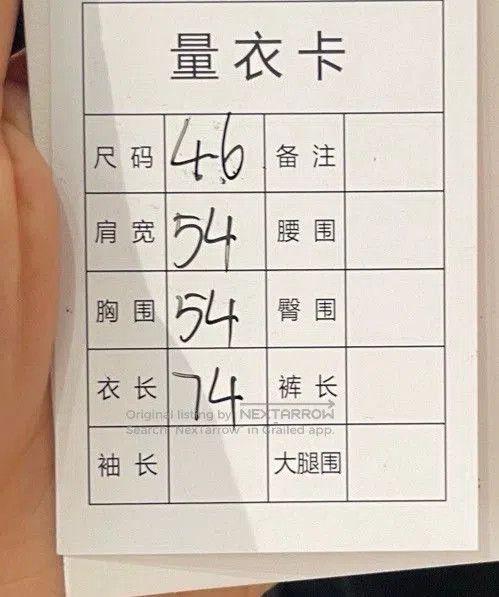 量衣卡
尺码 46 备注
肩宽 54 腰围
胸围 54 臀围
衣长 74 裤长
Original listing by NEXTARROW
Search "NexTarrow" in Grailed app.
袖长 大腿围